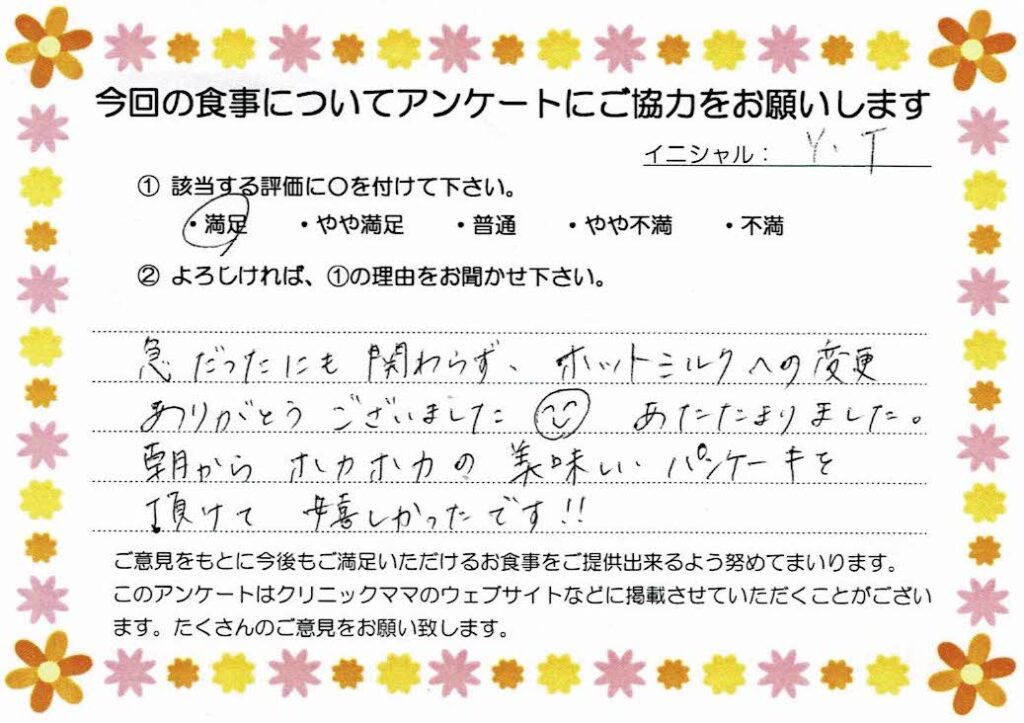 今回の食事についてアンケートにご協力をお願いします
イニシャル： Y.T
① 該当する評価に〇を付けて下さい。
・満足 ・やや満足 ・普通 ・やや不満 ・不満
② よろしければ、①の理由をお聞かせ下さい。
急だったにも関わらず、ホットミルクへの変更
ありがとうございました あたたまりました。
朝からホカホカの美味しいパンケーキを
頂けて嬉しかったです!!
ご意見をもとに今後もご満足いただけるお食事をご提供出来るよう努めてまいります。
このアンケートはクリニックママのウェブサイトなどに掲載させていただくことがござい
ます。たくさんのご意見をお願い致します。